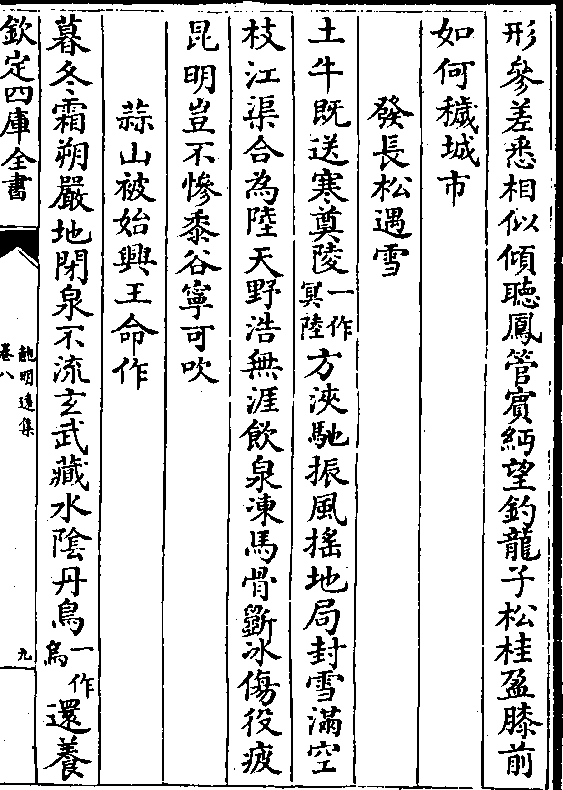 形參差悉相似傾聽鳳管賓緬望釣龍子松桂盈膝前
如何穢城市
發長松遇雪
土牛既送寒奠陵一作冥陸方浹馳振風搖地局封雪滿空
枝江渠合為陸天野浩無涯飲泉凍馬骨斵冰傷役疲
昆明豈不慘黍谷寧可吹
蒜山被始興王命作
暮冬霜朔嚴地閉泉不流玄武藏水陰丹鳥一作烏還養
欽定四庫全書
鮑明遠集
卷八
九